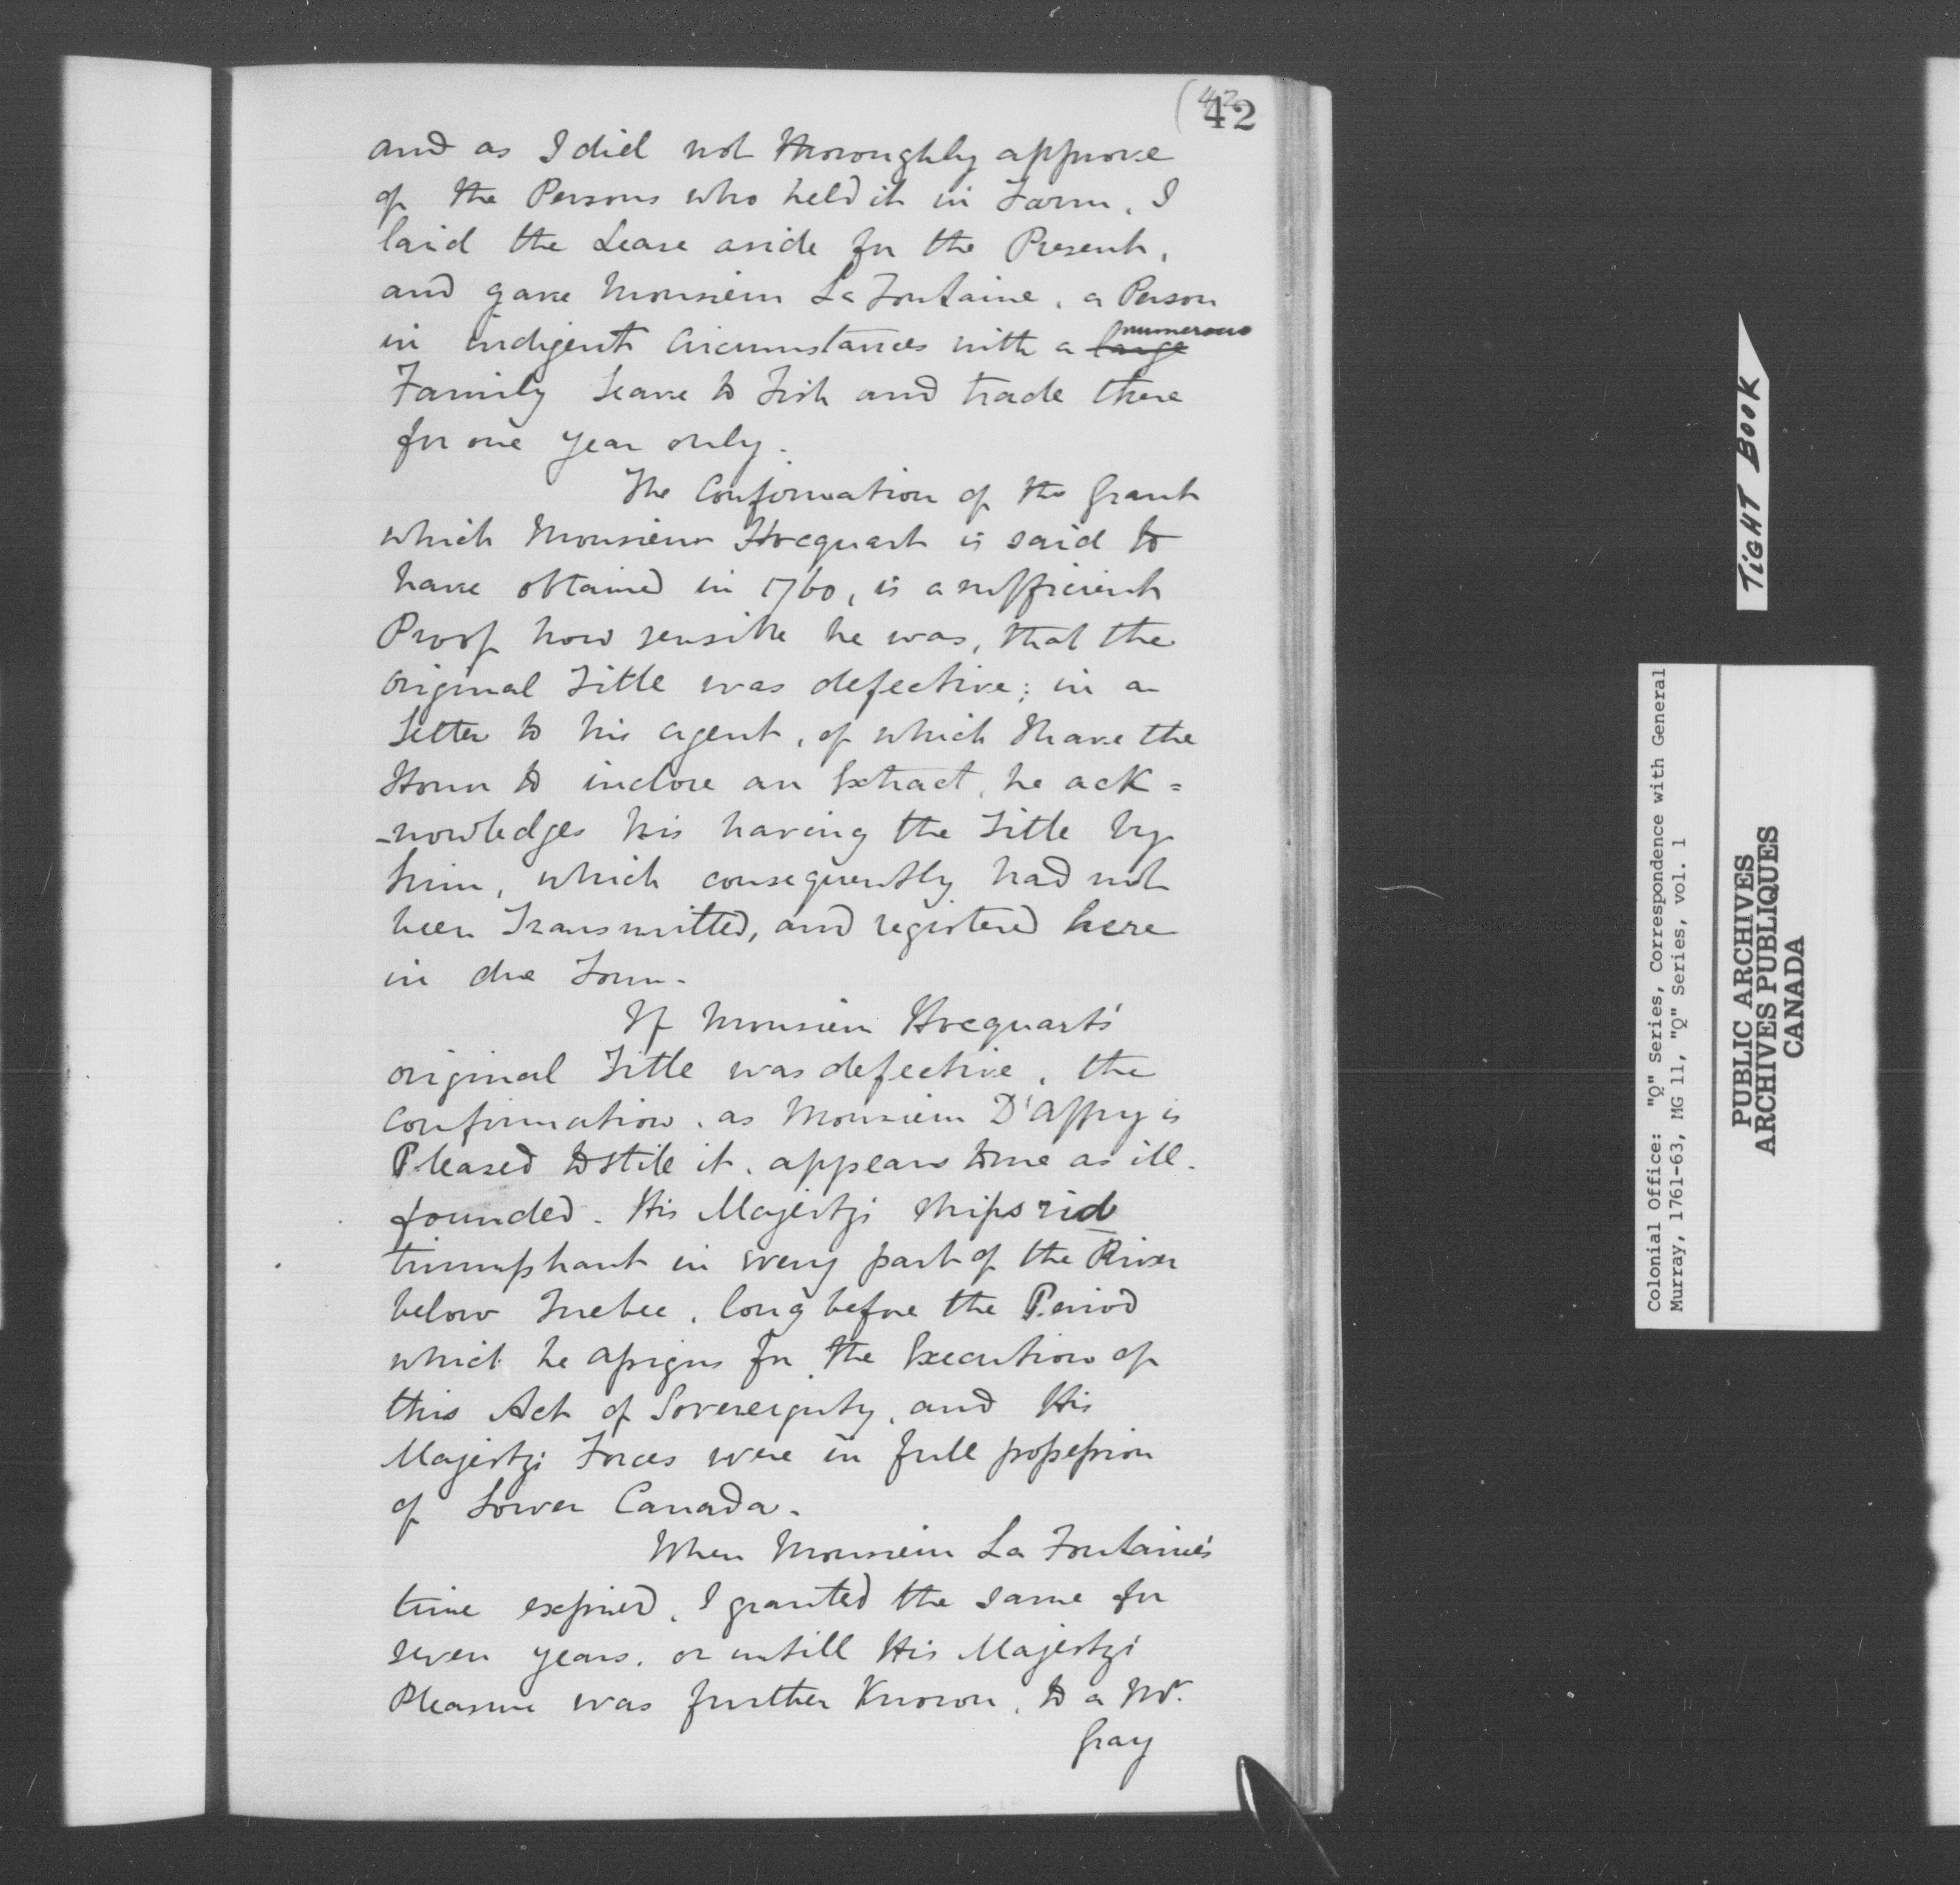 (42
42
and as I did not thoroughly approve
of the Persons who held it in Farm, I
laid the Lease aside for the Present,
and gave Monsieur La Fontaine, a Person
in indigent Circumstances with a large numerous
Family Leave to Fish and trade there
for one year only.
The Confirmation of the Grant
which Monsieur Hocquart is said to
have obtained in 1760, is a sufficient
Proof how sensible he was, that the
original Title was defective; in a
Letter to his agent, of which I have the
Honor to inclose an Extract, he ack=
-nowledges his having the Title by
him, which consequently had not
been Transmitted, and registered here
in due Form.
If Monsieur Hocquart's
original Title was defective, the
confirmation, as Monsieur D'Affry is
Pleased to stile it, appears to me as ill-
founded. His Majesty's ships rid
triumphant in every part of the River
below Quebec, long before the Period
which he assigns for the Execution of
this Act of Sovereignty, and His
Majesty's Forces were in full possession
of Lower Canada.
When Monsieur La Fontaine's
time expired, I granted the same for
seven years, or untill His Majesty's
Pleasure was further Known, to a Mr.
Gray
TIGHT BOOK
Colonial Office: "Q" Series, Correspondence with General
Murray, 1761-63, MG 11, "Q" Series, vol. 1
PUBLIC ARCHIVES
ARCHIVES PUBLIQUES
CANADA